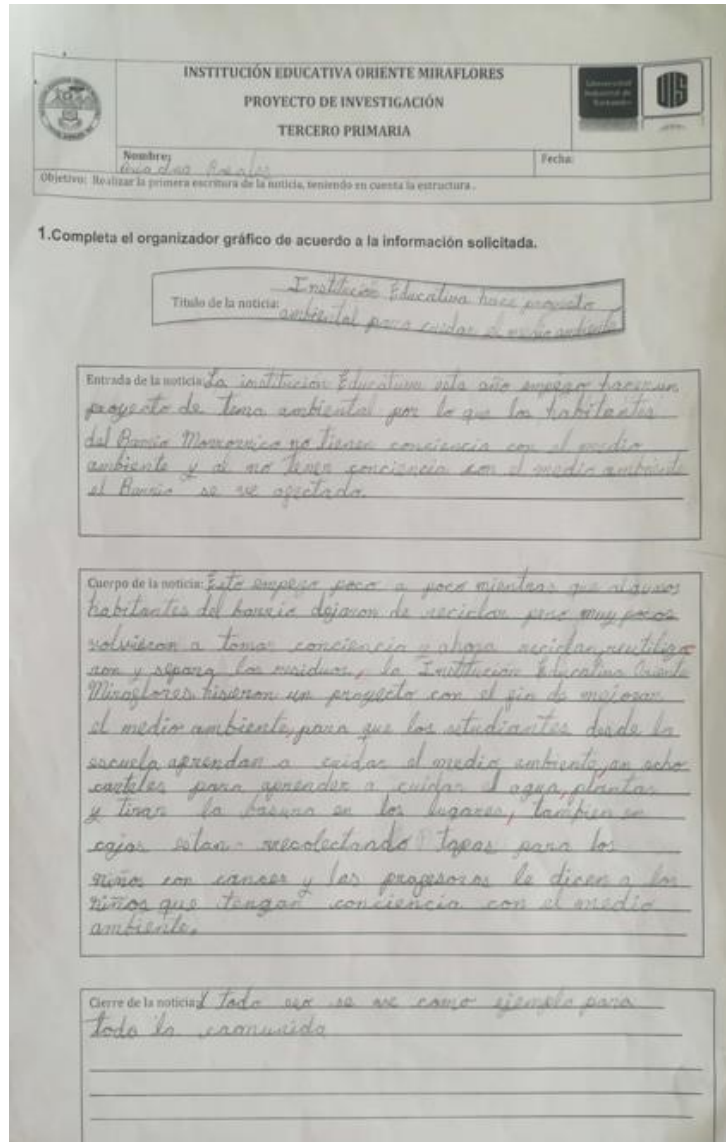 INSTITUCIÓN EDUCATIVA ORIENTE MIRAFLORES
PROYECTO DE INVESTIGACIÓN
TERCERO PRIMARIA
Universidad Industrial de Santander
UIS
Nombre:
Fecha:
Objetivo: Realizar la primera escritura de la noticia, teniendo en cuenta la estructura .
1.Completa el organizador gráfico de acuerdo a la información solicitada.
Titulo de la noticia: Institución Educativa hace proyecto
ambiental para cuidar el medio ambiente
Entrada de la noticia: La institución Educativa este año empezo hacer un
proyecto de tema ambiental por lo que los habitantes
del Barrio Morrorrico no tienen conciencia con el medio
ambiente y al no tener conciencia con el medio ambiente
el Barrio se ve afectado.
Cuerpo de la noticia: Esto empezo poco a poco mientras que algunos
habitantes del barrio dejaron de reciclar pero muy pocos
volvieron a tomar conciencia y ahora reciclan, reutiliza
ron y separa los residuos, la Institución Educativa Oriente
Miraflores hisieron un proyecto con el fin de mejorar
el medio ambiente, para que los estudiantes desde la
escuela aprendan a cuidar el medio ambiente, an echo
carteles para aprender a cuidar el agua, plantas
y tirar la basura en los lugares, tambien en
cajas estan recolectando tapas para los
niños con cancer y las profesoras le dicen a los
niños que tengan conciencia con el medio
ambiente.
Cierre de la noticia: Y todo eso se ve como ejemplo para
toda la comunida